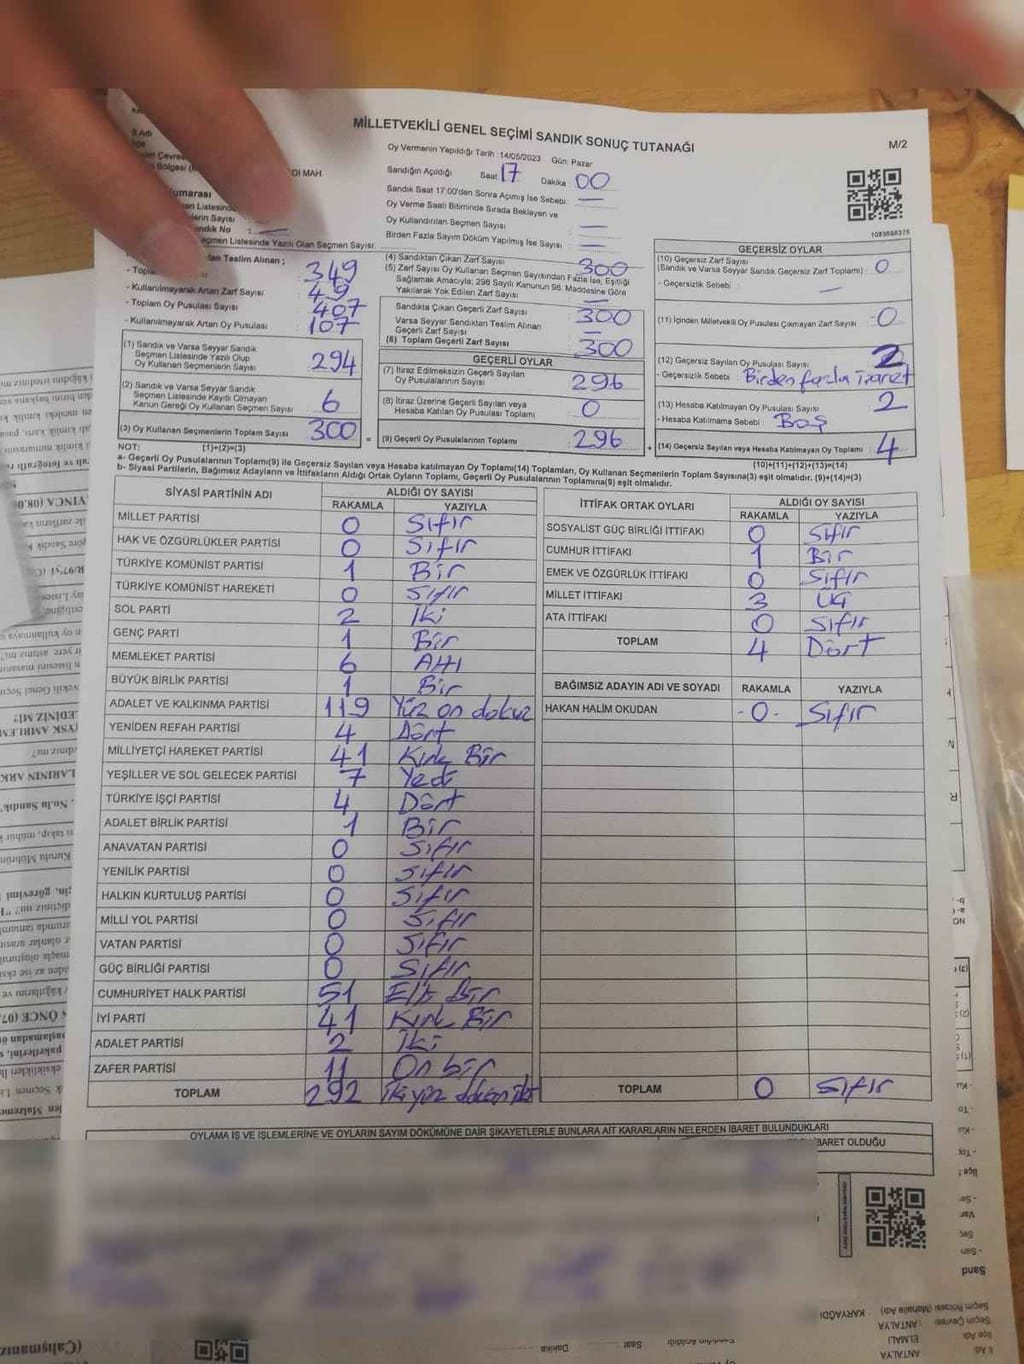 MİLLETVEKİLİ GENEL SEÇİMİ SANDIK SONUÇ TUTANAĞI
M/2
İl Adı
Oy Vermenin Yapıldığı Tarih : 14/05/2023 Gün: Pazar
Sandığın Açıldığı Saat 17 Dakika 00
DI MAH
Sandık Saat 17:00'den Sonra Açılmış İse Sebebi : —
Oy Verme Saati Bitiminde Sırada Bekleyen ve
Oy Kullandırılan Seçmen Sayısı —
Birden Fazla Sayım Döküm Yapılmış İse Sayısı —
1083698375
Seçmen Listesinde Yazılı Olan Seçmen Sayısı:
Teslim Alınan ;
349
- Kullanılmayarak Artan Zarf Sayısı 49
- Toplam Oy Pusulası Sayısı 407
- Kullanılmayarak Artan Oy Pusulası 107
(1) Sandık ve Varsa Seyyar Sandık
Seçmen Listesinde Yazılı Olup
Oy Kullanan Seçmenlerin Sayısı 294
(2) Sandık ve Varsa Seyyar Sandık
Seçmen Listesinde Kayıtlı Olmayan
Kanun Gereği Oy Kullanan Seçmen Sayısı 6
(3) Oy Kullanan Seçmenlerin Toplam Sayısı 300
(4) Sandıktan Çıkan Zarf Sayısı 300
(5) Zarf Sayısı Oy Kullanan Seçmen Sayısından Fazla İse, Eşitliği
Sağlamak Amacıyla; 298 Sayılı Kanunun 98. Maddesine Göre
Yakılarak Yok Edilen Zarf Sayısı —
Sandıkta Çıkan Geçerli Zarf Sayısı 300
Varsa Seyyar Sandıktan Teslim Alınan
Geçerli Zarf Sayısı —
(6) Toplam Geçerli Zarf Sayısı 300
GEÇERLİ OYLAR
(7) İtiraz Edilmeksizin Geçerli Sayılan
Oy Pusulalarının Sayısı 296
(8) İtiraz Üzerine Geçerli Sayılan veya
Hesaba Katılan Oy Pusulası Toplamı 0
= (9) Geçerli Oy Pusulalarının Toplamı 296
GEÇERSİZ OYLAR
(10) Geçersiz Zarf Sayısı
(Sandık ve Varsa Seyyar Sandık Geçersiz Zarf Toplamı) : 0
- Geçersizlik Sebebi : —
(11) İçinden Milletvekili Oy Pusulası Çıkmayan Zarf Sayısı : 0
(12) Geçersiz Sayılan Oy Pusulası Sayısı : 2
- Geçersizlik Sebebi : Birden fazla işaret
(13) Hesaba Katılmayan Oy Pusulası Sayısı : 2
- Hesaba Katılmama Sebebi : Boş
+ (14) Geçersiz Sayılan veya Hesaba Katılmayan Oy Toplamı : 4
NOT: (1)+(2)=(3)
(10)+(11)+(12)+(13)=(14)
a- Geçerli Oy Pusulalarının Toplamı(9) ile Geçersiz Sayılan veya Hesaba katılmayan Oy Toplamı(14) Toplamları, Oy Kullanan Seçmenlerin Toplam Sayısına(3) eşit olmalıdır. (9)+(14)=(3)
b- Siyasi Partilerin, Bağımsız Adayların ve İttifakların Aldığı Ortak Oyların Toplamı, Geçerli Oy Pusulalarının Toplamına(9) eşit olmalıdır.
SİYASİ PARTİNİN ADI ALDIĞI OY SAYISI
RAKAMLA YAZIYLA
MİLLET PARTİSİ 0 Sıfır
HAK VE ÖZGÜRLÜKLER PARTİSİ 0 Sıfır
TÜRKİYE KOMÜNİST PARTİSİ 1 Bir
TÜRKİYE KOMÜNİST HAREKETİ 0 Sıfır
SOL PARTİ 2 İki
GENÇ PARTİ 1 Bir
MEMLEKET PARTİSİ 6 Altı
BÜYÜK BİRLİK PARTİSİ 1 Bir
ADALET VE KALKINMA PARTİSİ 119 Yüz on dokuz
YENİDEN REFAH PARTİSİ 4 Dört
MİLLİYETÇİ HAREKET PARTİSİ 41 Kırk Bir
YEŞİLLER VE SOL GELECEK PARTİSİ 7 Yedi
TÜRKİYE İŞÇİ PARTİSİ 4 Dört
ADALET BİRLİK PARTİSİ 1 Bir
ANAVATAN PARTİSİ 0 Sıfır
YENİLİK PARTİSİ 0 Sıfır
HALKIN KURTULUŞ PARTİSİ 0 Sıfır
MİLLİ YOL PARTİSİ 0 Sıfır
VATAN PARTİSİ 0 Sıfır
GÜÇ BİRLİĞİ PARTİSİ 0 Sıfır
CUMHURİYET HALK PARTİSİ 51 Elli Bir
İYİ PARTİ 41 Kırk Bir
ADALET PARTİSİ 2 İki
ZAFER PARTİSİ 11 On bir
TOPLAM 292 İkiyüz doksan iki
İTTİFAK ORTAK OYLARI ALDIĞI OY SAYISI
RAKAMLA YAZIYLA
SOSYALİST GÜÇ BİRLİĞİ İTTİFAKI 0 Sıfır
CUMHUR İTTİFAKI 1 Bir
EMEK VE ÖZGÜRLÜK İTTİFAKI 0 Sıfır
MİLLET İTTİFAKI 3 Üç
ATA İTTİFAKI 0 Sıfır
TOPLAM 4 Dört
BAĞIMSIZ ADAYIN ADI VE SOYADI RAKAMLA YAZIYLA
HAKAN HALİM OKUDAN -0- Sıfır
TOPLAM 0 Sıfır
OYLAMA İŞ VE İŞLEMLERİNE VE OYLARIN SAYIM DÖKÜMÜNE DAİR ŞİKAYETLERLE BUNLARA AİT KARARLARIN NELERDEN İBARET BULUNDUKLARI
İBARET OLDUĞU
Sandı
Seçim Bölgesi (Mahalle Adı) : KARYAĞDI
Seçim Çevresi : ANTALYA
İlçe Adı ELMALI
İl Adı ANTALYA
Sandığın Açıldığı Saat Dakika
(Çalışmanız